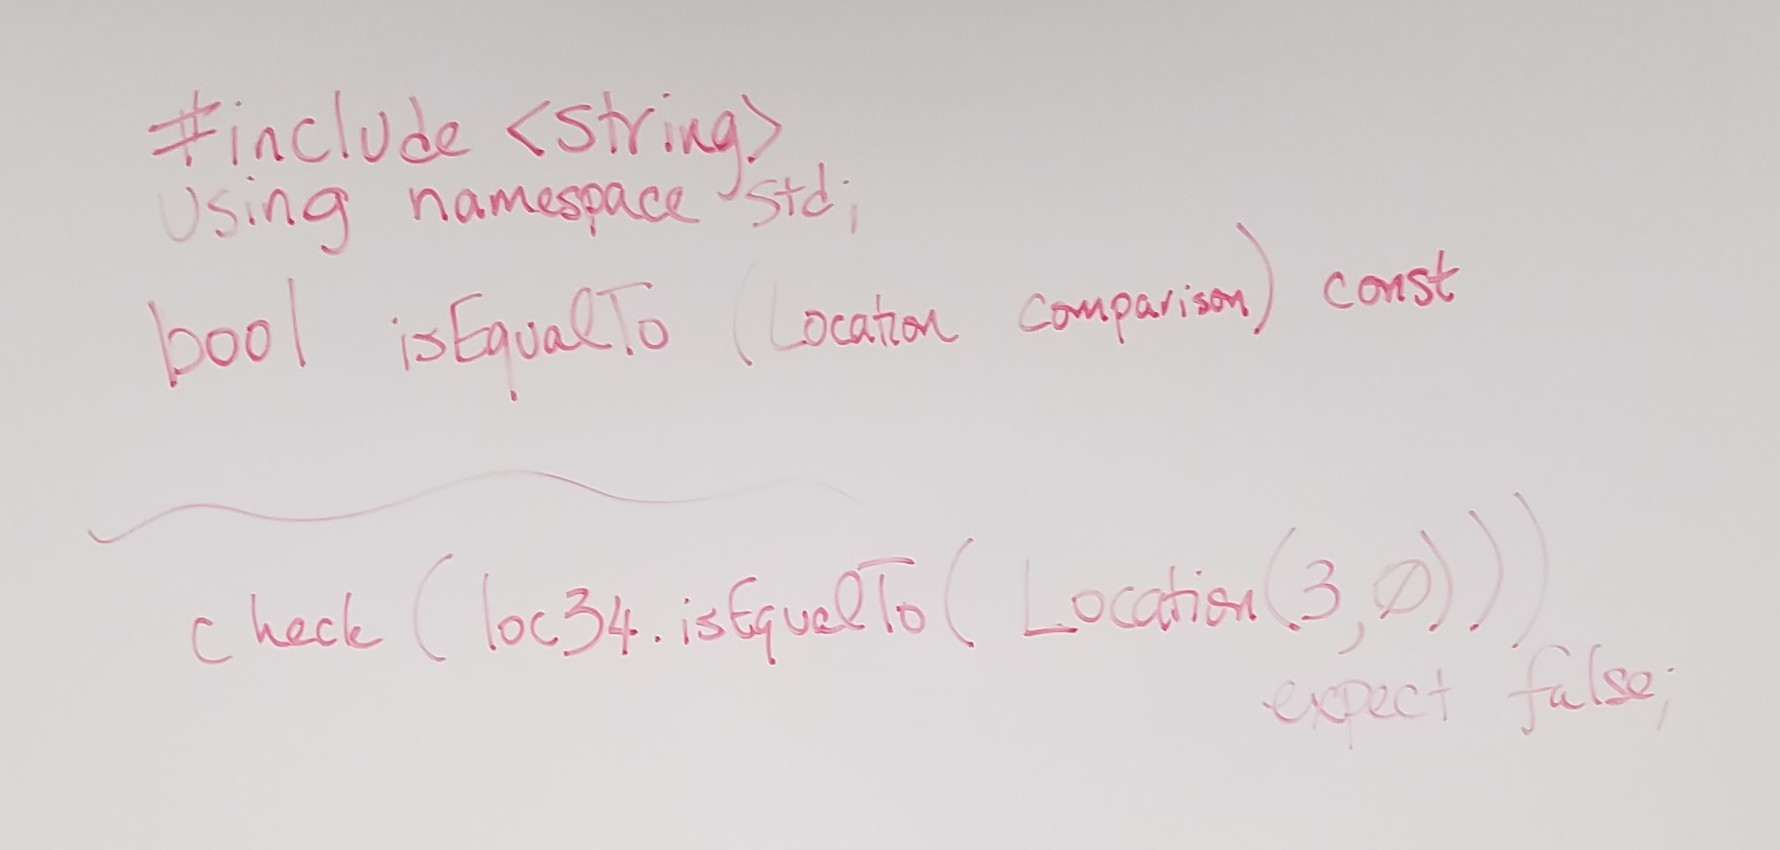 #include <string>
using namespace std;
bool isEqualTo (Location comparison) const
check (loc34.isEqualTo( Location(3,0)))
expect false;